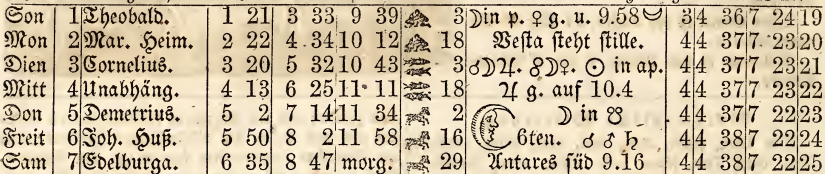 Son 1 Theobald. 1 21 3 33 9 39 3 ☽in p. ♀ g. u. 9.58 3 4 36 7 24 19
Mon 2 Mar. Heim. 2 22 4 34 10 12 18 Vesta steht stille. 4 4 37 7 23 20
Dien 3 Cornelius. 3 20 5 32 10 43 3 ☌☽♃. ☍☽♀. ☉ in ap. 4 4 37 7 23 21
Mitt 4 Unabhäng. 4 13 6 25 11 11 18 ♃ g. auf 10.4 4 4 37 7 23 22
Don 5 Demetrius. 5 2 7 14 11 34 2 ☽ in ☋ 4 4 37 7 22 23
Freit 6 Joh. Huß. 5 50 8 2 11 58 16 6ten. ☌ ♂ ♄ 4 4 38 7 22 24
Sam 7 Edelburga. 6 35 8 47 morg. 29 Antares süd 9.16 4 4 38 7 22 25